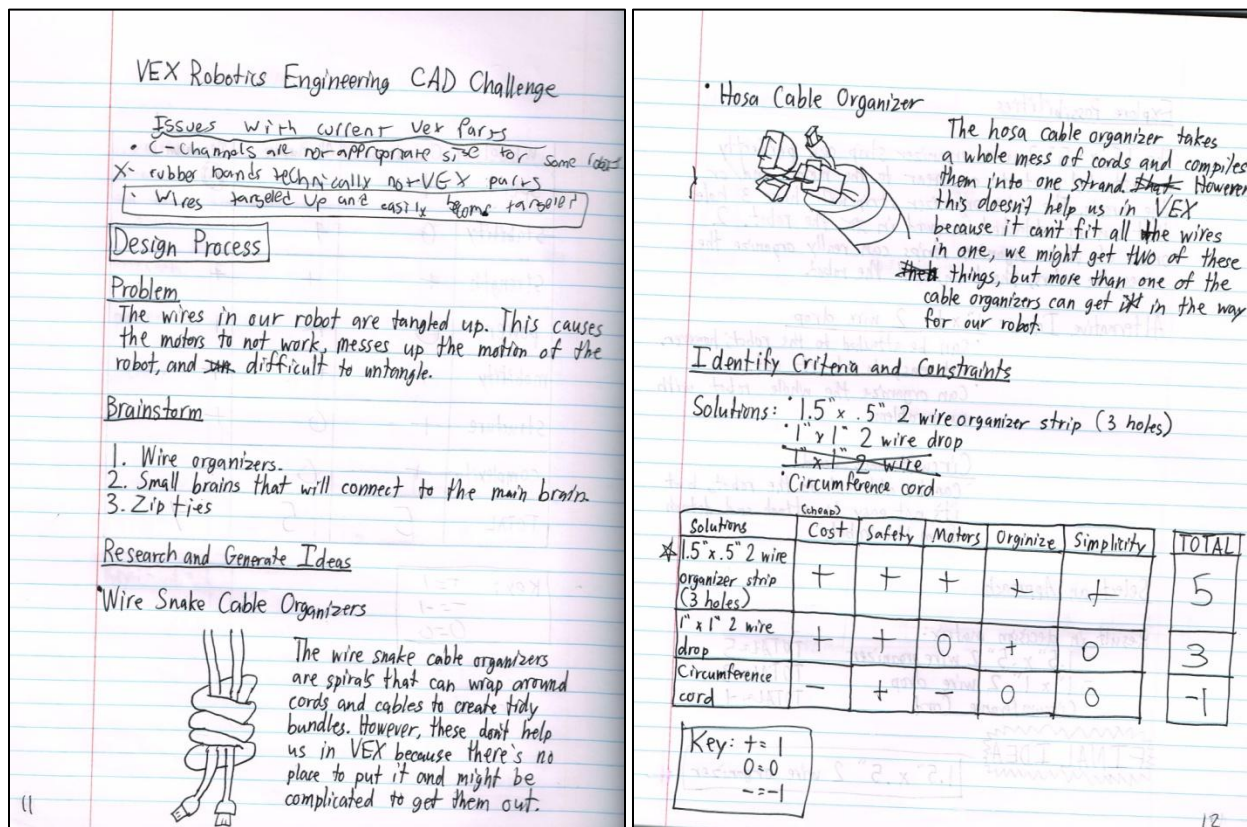 VEX Robotics Engineering CAD Challenge
Issues with current Vex Parts
• C-Channels are not appropriate size for some
X- rubber bands technically not VEX parts
• Wires tangeled up and easily become tangeled
Design Process
Problem
The wires in our robot are tangled up. This causes
the motors to not work, messes up the motion of the
robot, and difficult to untangle.
Brainstorm
1. Wire organizers.
2. Small brains that will connect to the main brain
3. Zip ties
Research and Generate Ideas
• Wire Snake Cable Organizers
The wire snake cable organizers
are spirals that can wrap around
cords and cables to create tidy
bundles. However, these don't help
us in VEX because there's no
place to put it and might be
complicated to get them out.
11
• Hosa Cable Organizer
The hosa cable organizer takes
a whole mess of cords and compiles
them into one strand. that However
this doesn't help us in VEX
because it can't fit all the wires
in one, we might get two of these
things, but more than one of the
cable organizers can get in the way
for our robot.
Identify Criteria and Constraints
Solutions: • 1.5" x .5" 2 wire organizer strip (3 holes)
• 1" x 1" 2 wire drop
1" x 1" 2 wire
• Circumference cord
Solutions (cheap) Cost Safety Motors Orginize Simplicity TOTAL
1.5" x .5" 2 wire
organizer strip + + + + + 5
(3 holes)
1" x 1" 2 wire
drop + + 0 + 0 3
Circumference
cord - + - 0 0 -1
Key: + = 1
0 = 0
- = -1
12